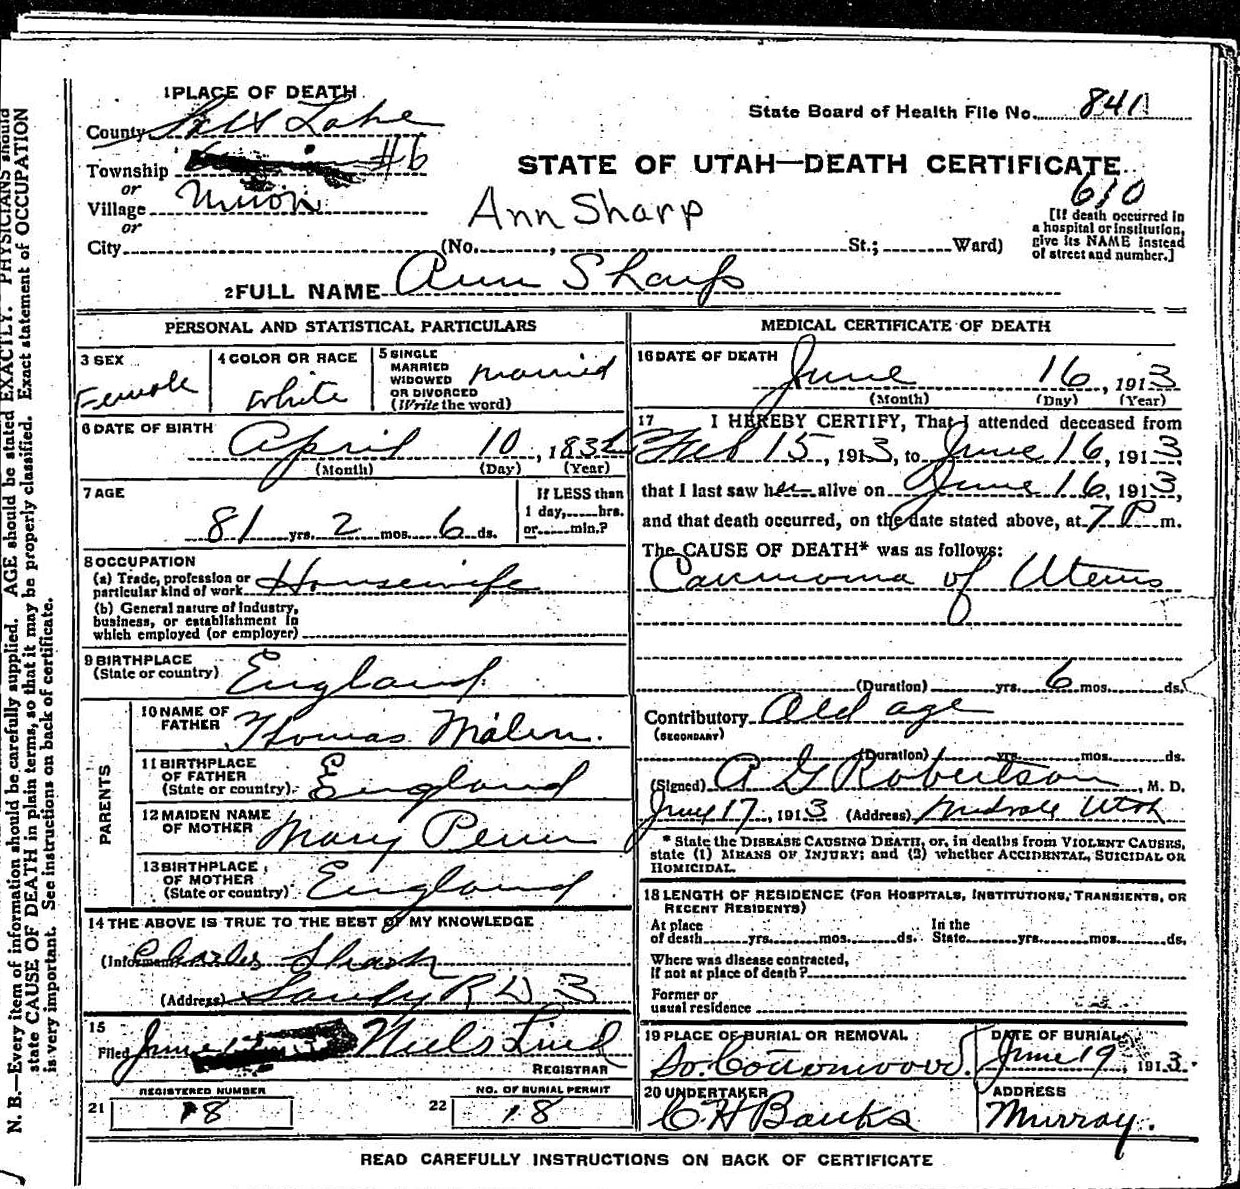 1 PLACE OF DEATH
County Salt Lake
State Board of Health File No. 841
Township #6
or
Village Union
or
City
STATE OF UTAH—DEATH CERTIFICATE
610
Ann Sharp
(No. , St.; Ward)
[If death occurred in
a hospital or institution,
give its NAME instead
of street and number.]
2 FULL NAME Ann Sharp
PERSONAL AND STATISTICAL PARTICULARS
3 SEX
Female
4 COLOR OR RACE
White
5 SINGLE
MARRIED
WIDOWED
OR DIVORCED
(Write the word)
married
6 DATE OF BIRTH
April 10, 1832
(Month) (Day) (Year)
7 AGE
81 yrs. 2 mos. 6 ds.
If LESS than
1 day, hrs.
or min.?
8 OCCUPATION
(a) Trade, profession or
particular kind of work Housewife
(b) General nature of industry,
business, or establishment in
which employed (or employer)
9 BIRTHPLACE
(State or country) England
PARENTS
10 NAME OF
FATHER Thomas Malin.
11 BIRTHPLACE
OF FATHER
(State or country) England
12 MAIDEN NAME
OF MOTHER Mary Penn
13 BIRTHPLACE
OF MOTHER
(State or country) England
14 THE ABOVE IS TRUE TO THE BEST OF MY KNOWLEDGE
(Informant) Charles Sharp
(Address) Sandy R D 3
15
Filed June Niels Lind
REGISTRAR
REGISTERED NUMBER
21 18
NO. OF BURIAL PERMIT
22 18
MEDICAL CERTIFICATE OF DEATH
16 DATE OF DEATH
June 16, 1913
(Month) (Day) (Year)
17 I HEREBY CERTIFY, That I attended deceased from
Feb 15, 1913, to June 16, 1913
that I last saw her alive on June 16, 1913,
and that death occurred, on the date stated above, at 7 P m.
The CAUSE OF DEATH* was as follows:
Carcinoma of Uterus
(Duration) yrs. 6 mos. ds.
Contributory Old age
(SECONDARY)
(Duration) yrs. mos. ds.
(Signed) A G Robertson, M. D.
June 17, 1913 (Address) Midvale Utah
* State the DISEASE CAUSING DEATH, or, in deaths from VIOLENT CAUSES,
state (1) MEANS OF INJURY; and (2) whether ACCIDENTAL, SUICIDAL OR
HOMICIDAL.
18 LENGTH OF RESIDENCE (FOR HOSPITALS, INSTITUTIONS, TRANSIENTS, OR
RECENT RESIDENTS)
At place
of death yrs. mos. ds.
In the
State yrs. mos. ds.
Where was disease contracted,
if not at place of death?
Former or
usual residence
19 PLACE OF BURIAL OR REMOVAL
So. Cottonwood.
DATE OF BURIAL
June 19, 1913.
20 UNDERTAKER
C H Banks
ADDRESS
Murray.
READ CAREFULLY INSTRUCTIONS ON BACK OF CERTIFICATE
N. B.—Every item of information should be carefully supplied. AGE should be stated EXACTLY. PHYSICIANS should
state CAUSE OF DEATH in plain terms, so that it may be properly classified. Exact statement of OCCUPATION
is very important. See instructions on back of certificate.